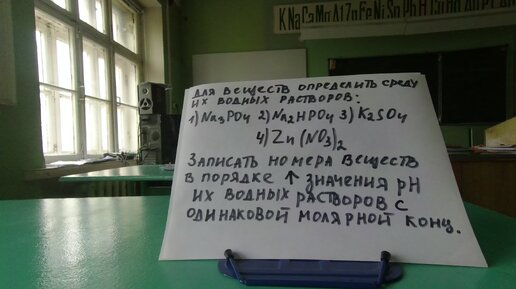 K Na Ca Mg Al Zn Fe Ni Sn Pb H
ДЛЯ ВЕЩЕСТВ ОПРЕДЕЛИТЬ СРЕДУ
ИХ ВОДНЫХ РАСТВОРОВ:
1) Na3PO4 2) Na2HPO4 3) K2SO4
4) Zn(NO3)2
ЗАПИСАТЬ НОМЕРА ВЕЩЕСТВ
В ПОРЯДКЕ ↑ ЗНАЧЕНИЯ pH
ИХ ВОДНЫХ РАСТВОРОВ С
ОДИНАКОВОЙ МОЛЯРНОЙ КОНЦ.